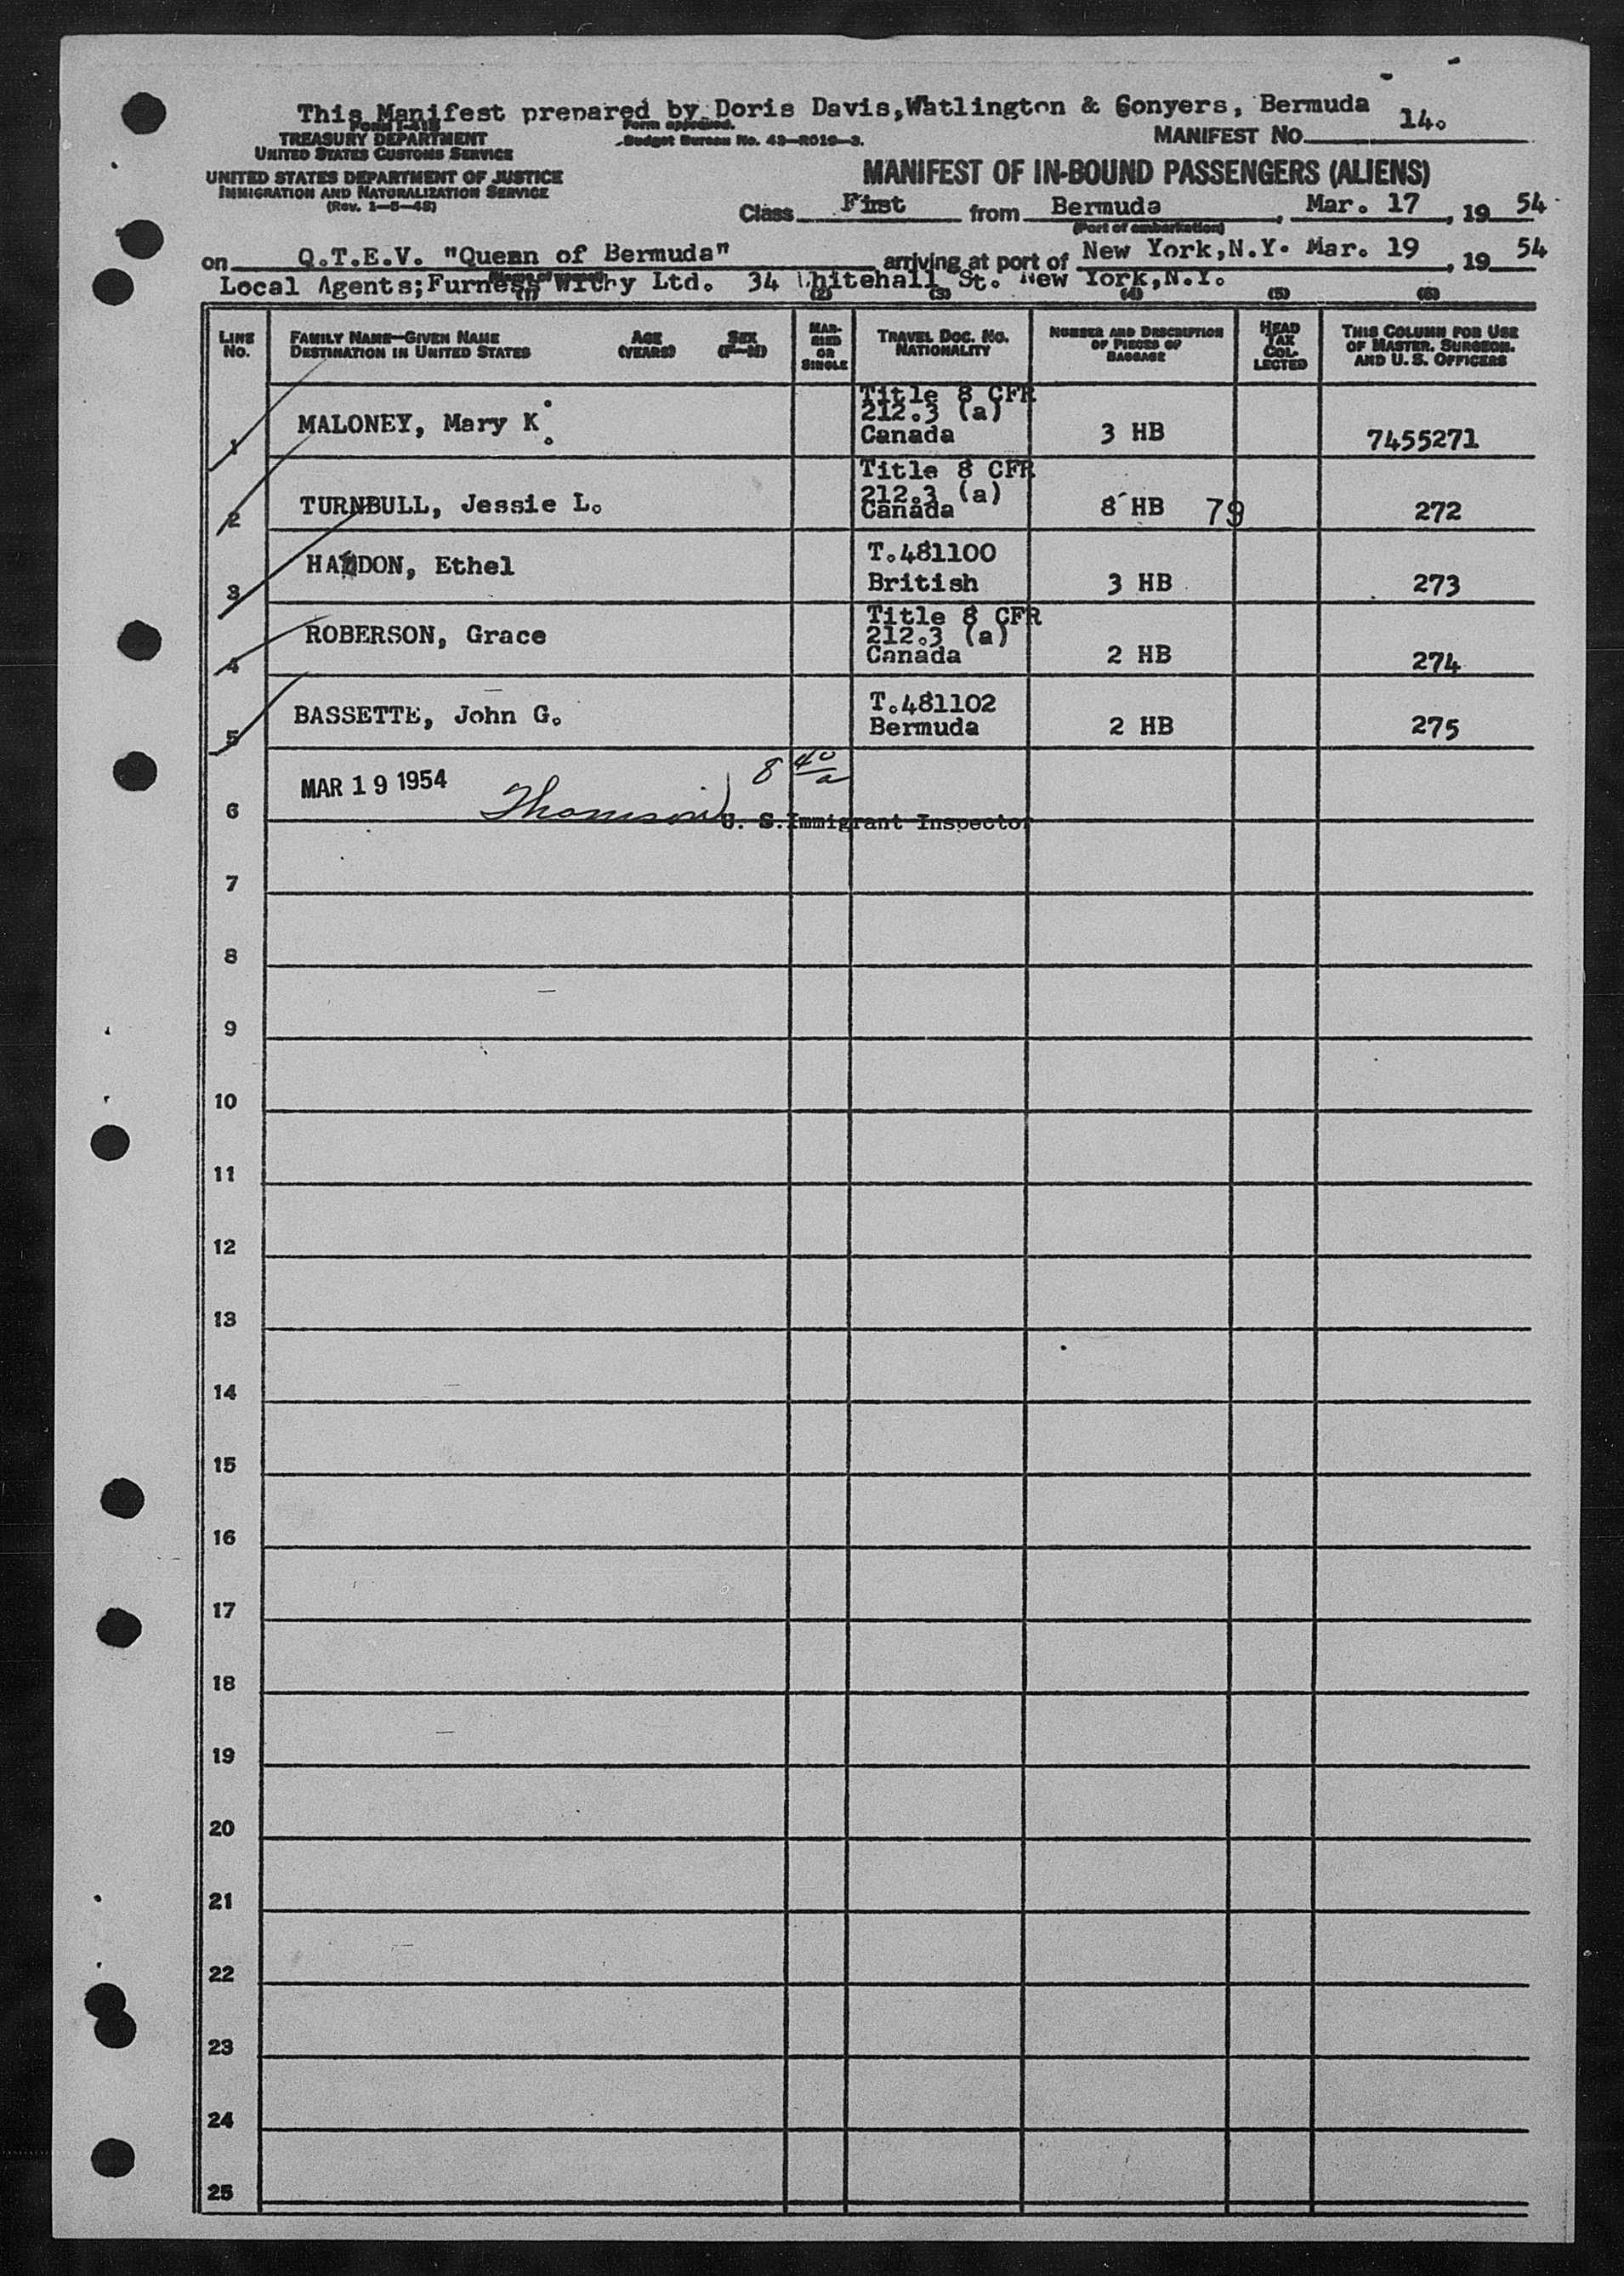 This Manifest prepared by Doris Davis,Watlington & Gonyers, Bermuda
Form I-415
TREASURY DEPARTMENT
UNITED STATES CUSTOMS SERVICE
UNITED STATES DEPARTMENT OF JUSTICE
IMMIGRATION AND NATURALIZATION SERVICE
(Rev. 1—5—48)
Form approved.
Budget Bureau No. 43—R019—3.
MANIFEST NO. 14.
MANIFEST OF IN-BOUND PASSENGERS (ALIENS)
Class First from Bermuda, Mar. 17, 19 54
(Port of embarkation)
on Q.T.E.V. "Queen of Bermuda" arriving at port of New York,N.Y. Mar. 19, 19 54
(Name of vessel)
Local Agents;Furness Withy Ltd. 34 Whitehall St. New York,N.Y.
(1) (2) (3) (4) (5) (6)
LINE No.
FAMILY NAME—GIVEN NAME
DESTINATION IN UNITED STATES
AGE (YEARS)
SEX (F—M)
MARRIED OR SINGLE
TRAVEL DOC. NO. NATIONALITY
NUMBER AND DESCRIPTION OF PIECES OF BAGGAGE
HEAD TAX COLLECTED
THIS COLUMN FOR USE OF MASTER, SURGEON, AND U. S. OFFICERS
1 MALONEY, Mary K. Title 8 CFR 212.3 (a) Canada 3 HB 7455271
2 TURNBULL, Jessie L. Title 8 CFR 212.3 (a) Canada 8 HB 79 272
3 HADDON, Ethel T.481100 British 3 HB 273
4 ROBERSON, Grace Title 8 CFR 212.3 (a) Canada 2 HB 274
5 BASSETTE, John G. T.481102 Bermuda 2 HB 275
6 MAR 19 1954 Thomson 8 40/a
U. S. Immigrant Inspector
7
8
9
10
11
12
13
14
15
16
17
18
19
20
21
22
23
24
25